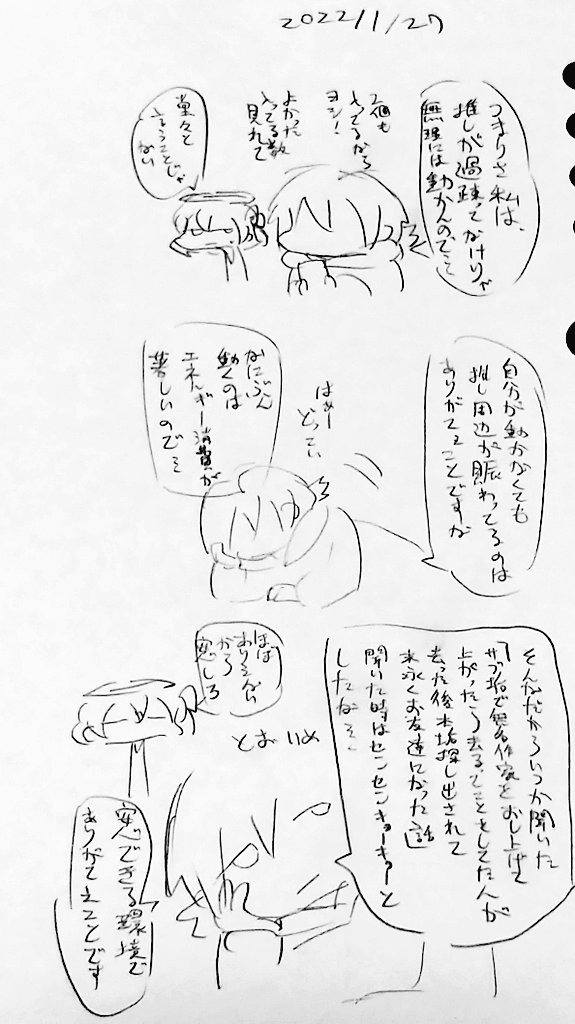 2022/11/27
つまりさ 私は、
推しが過疎ってなけりゃ
無理には動かんのでそ
2個も
ヨシ!
よかった
見れて
堂々と
言うことじゃ
ない
自分が動かなくても
推し周辺が賑わってるのは
ありがてえことですが
はぁー
どっこい
なにぶん
動くのは
エネルギー消費が
著しいのでそ
そんなだからいつか聞いた
「サブ垢で無名作家をおし上げて
上がったら去る」てことをしてた人が
去った後本垢探し出されて
末永くお友達になった話
聞いた時はセンセンキョーキョーと
したなそ
ほぼ
ありえない
から
安心しろ
とおいめ
安心できる環境で
ありがてえことです